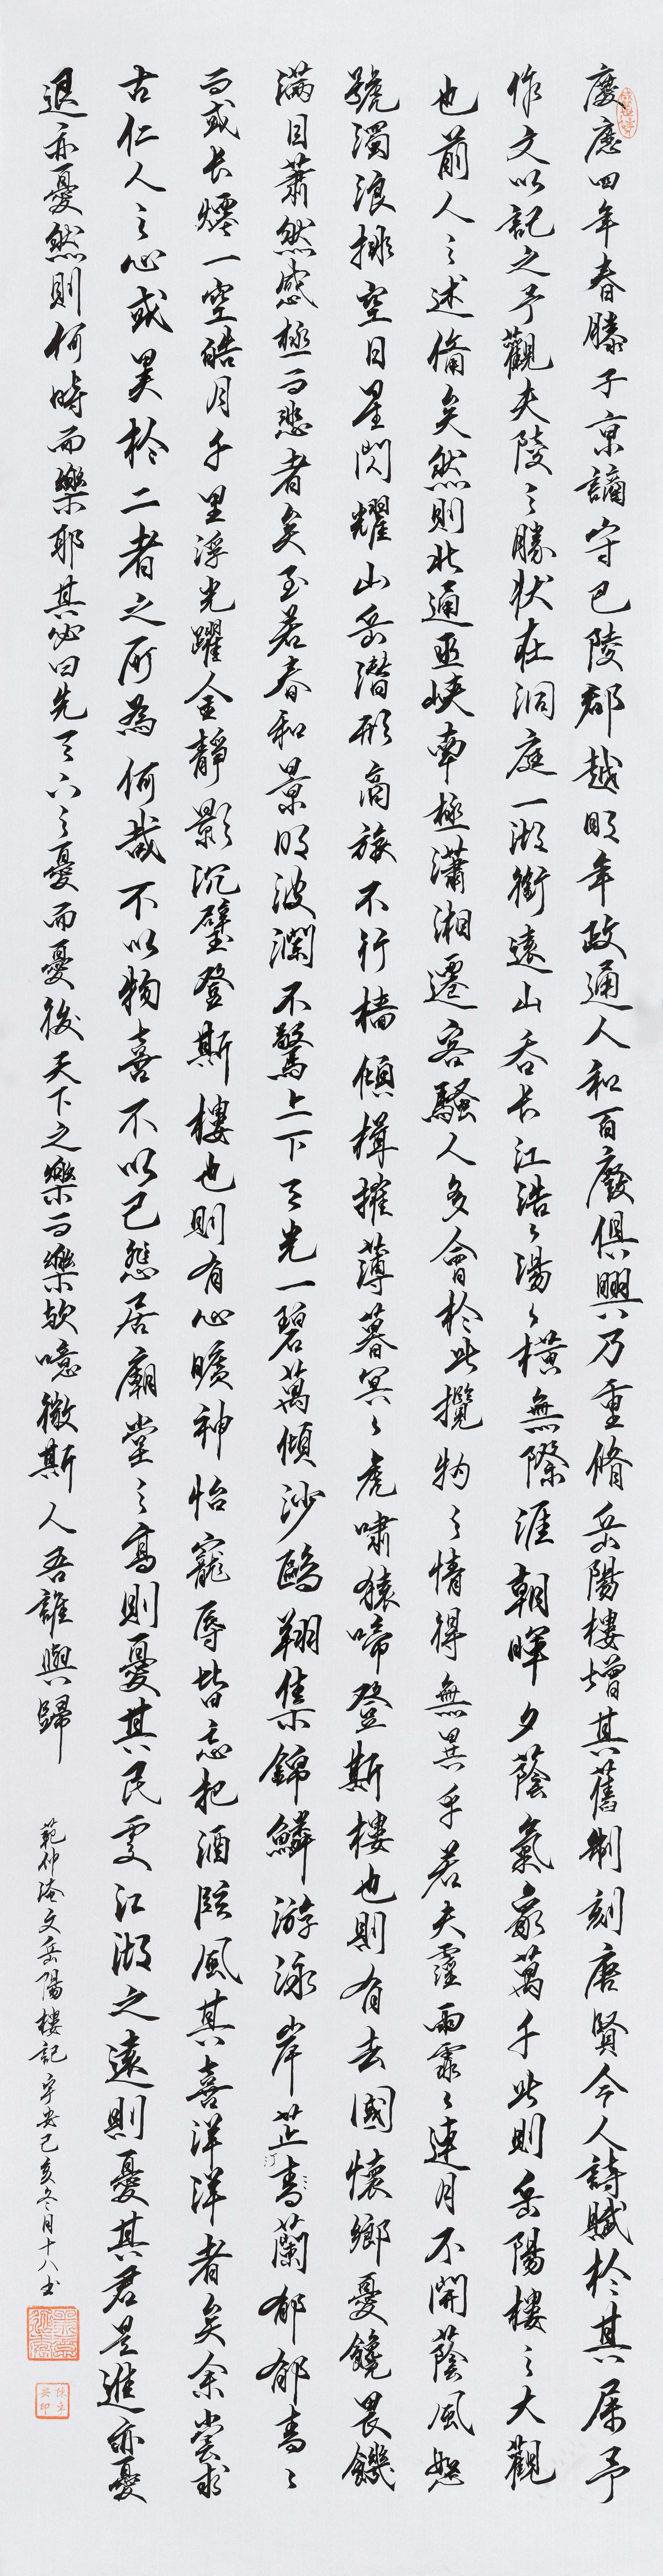 慶應四年春滕子京謫守巴陵郡越明年政通人和百廢俱興乃重脩岳陽樓增其舊制刻唐賢今人詩賦於其屬予
作文以記之予觀夫陵之勝狀在洞庭一湖銜遠山吞長江浩浩湯湯橫無際涯朝暉夕蔭氣象萬千此則岳陽樓之大觀
也前人之述備矣然則北通巫峽南極瀟湘遷客騷人多會於此攬物之情得無異乎若夫霪雨霏霏連月不開蔭風怒
號濁浪排空日星閃耀山岳潛形商旅不行檣傾楫摧薄暮冥冥虎嘯猿啼登斯樓也則有去國懷鄉憂饞畏饑
滿目蕭然感極而悲者矣至若春和景明波瀾不驚上下天光一碧萬傾沙鷗翔集錦鱗游泳岸芷青蘭郁郁青青
汀
而或長煙一空皓月千里浮光躍金靜影沉璧登斯樓也則有心曠神怡寵辱皆忘把酒臨風其喜洋洋者矣余嘗求
古仁人之心或異於二者之所為何哉不以物喜不以己悲居廟堂之高則憂其民處江湖之遠則憂其君是進亦憂
退亦憂然則何時而樂耶其必曰先天下之憂而憂後天下之樂而樂歟噫微斯人吾誰與歸
範仲淹文岳陽樓記 宇央己亥冬月十八書